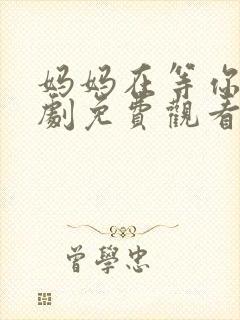 妈妈在等你
劇免費觀看
曾學忠